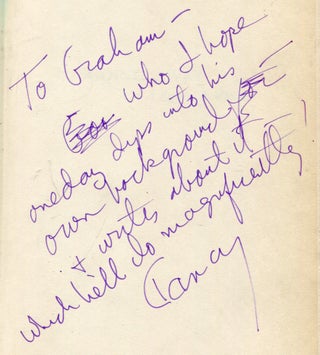 To Graham —
who I hope
oneday dips into his
own background —
& writes about it —
which he'll do magnificently!